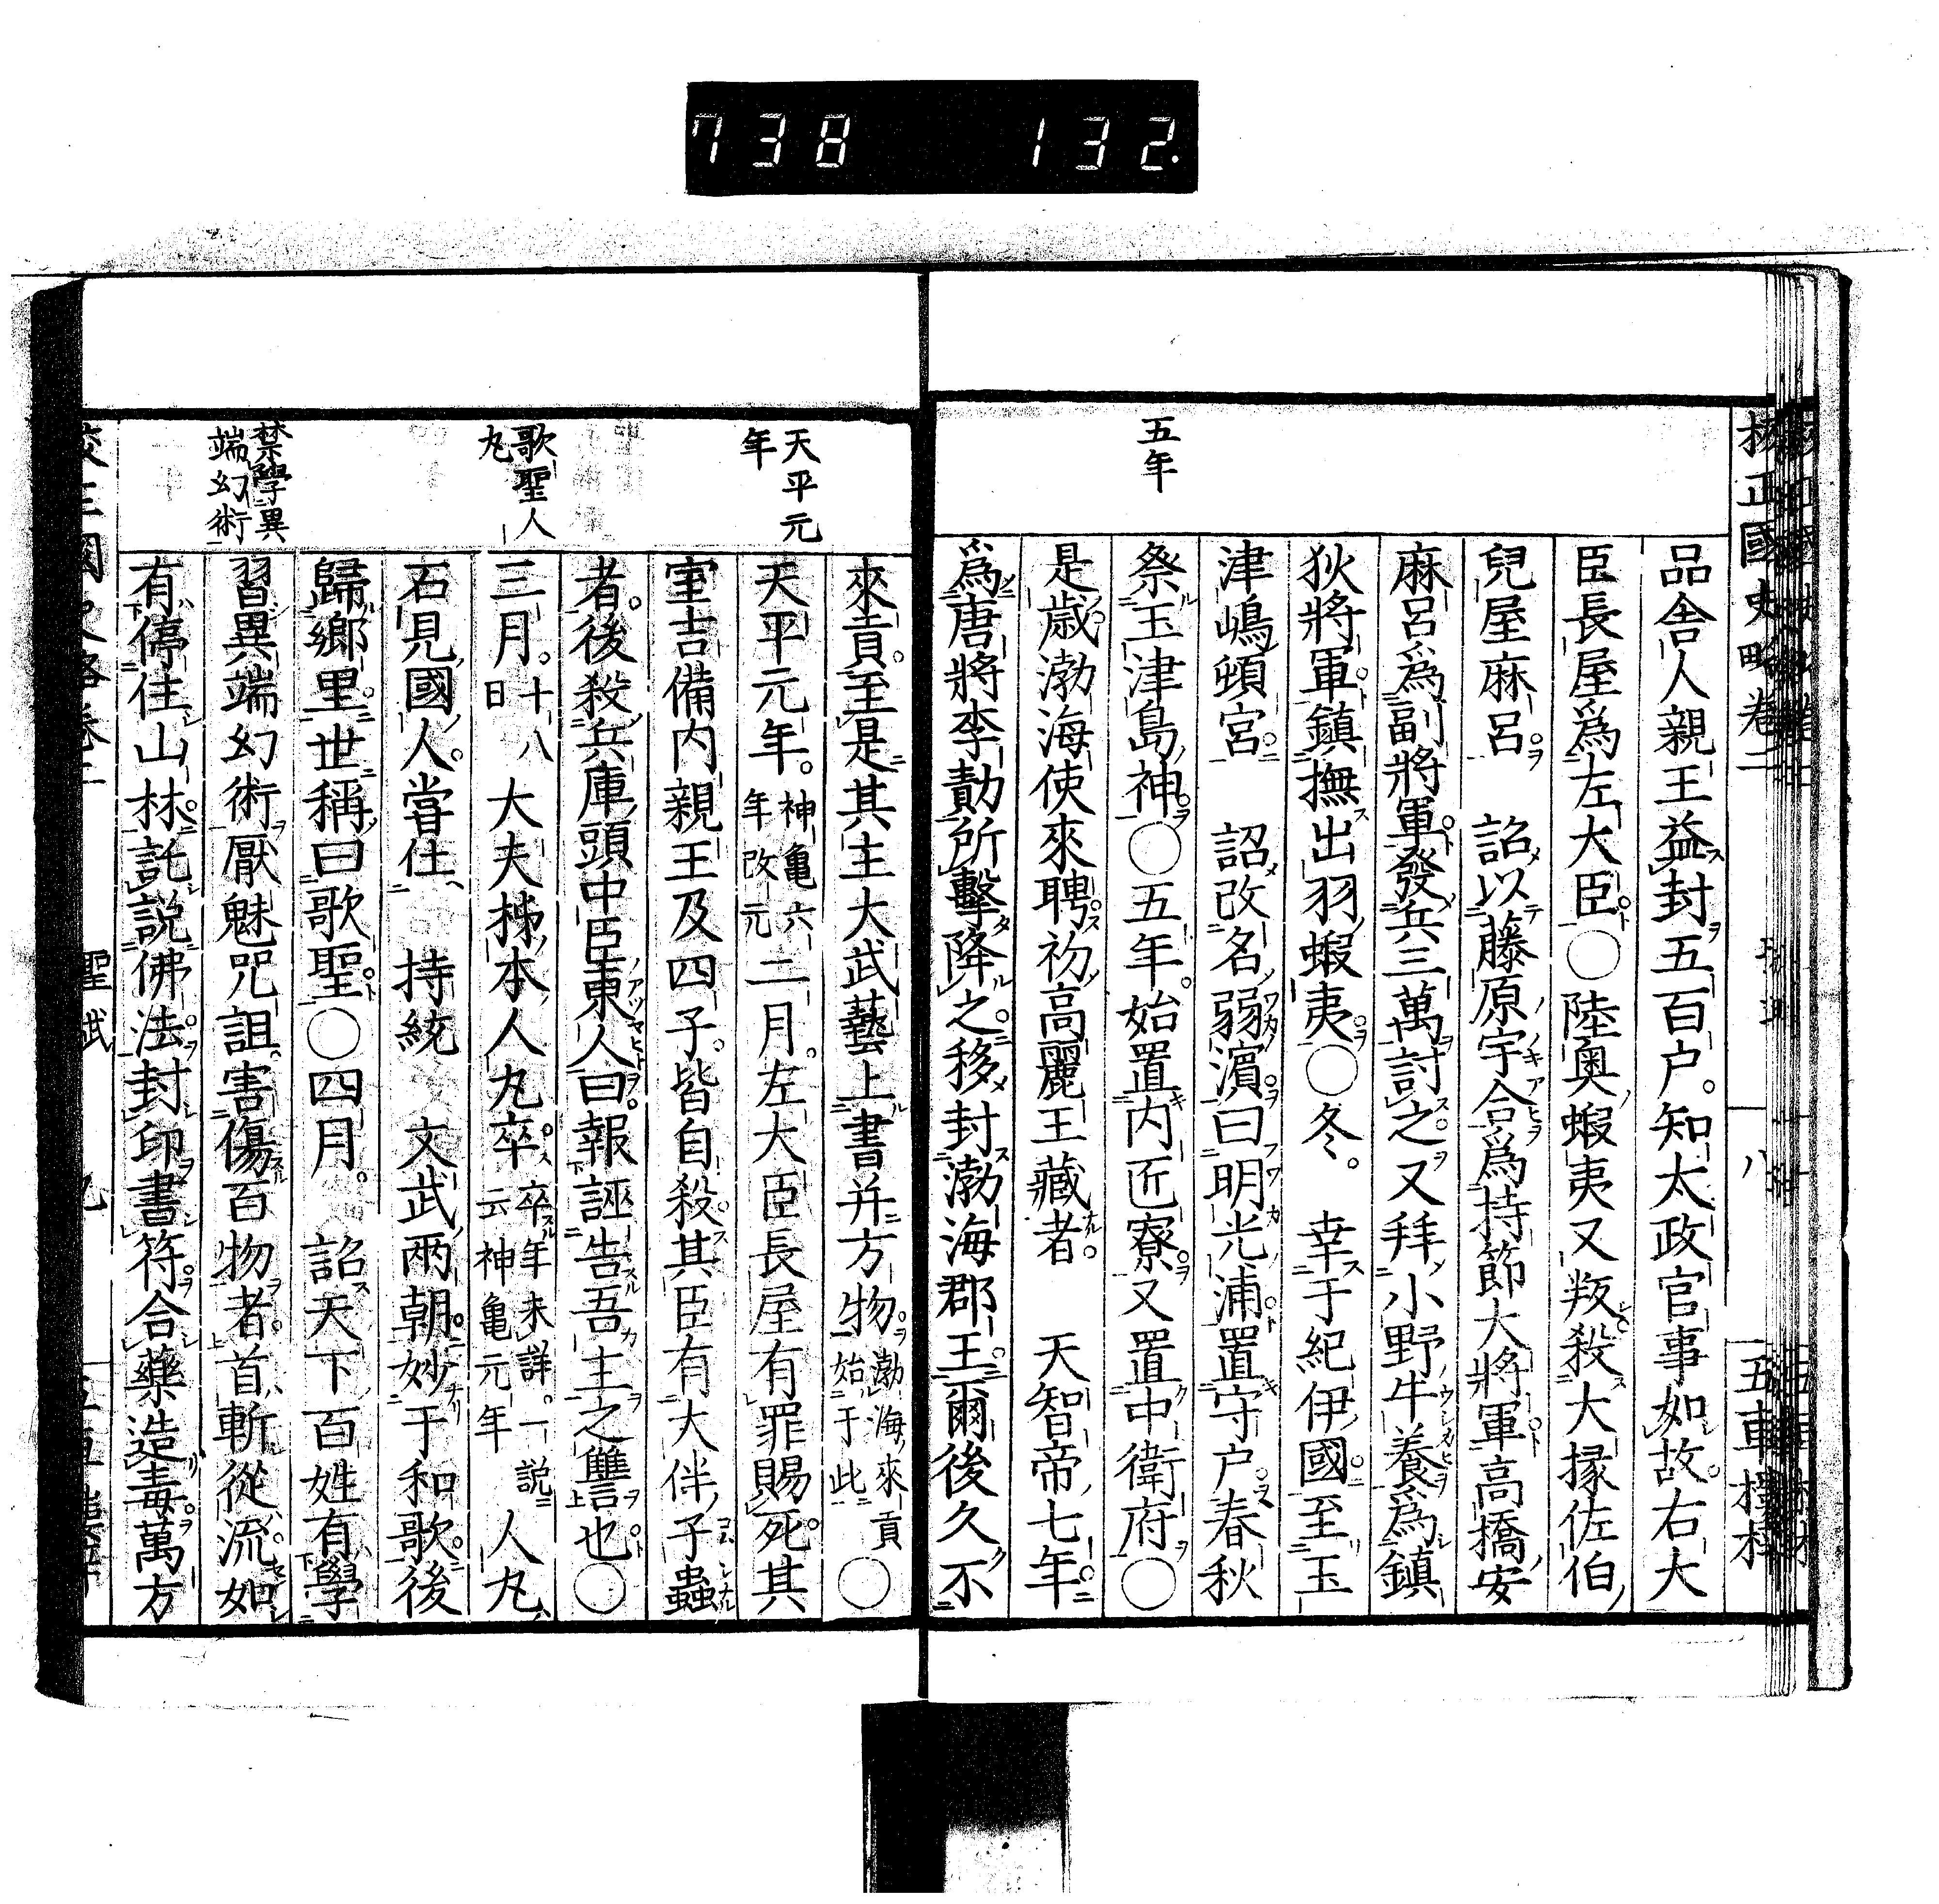 738 132.
校正國史略卷二
八
五車樓梓
五年
品舍人親王益封五百户。知太政官事如故。右大
臣長屋爲左大臣○陸奥蝦夷又叛殺大掾佐伯
兒屋麻呂 詔以藤原宇合爲持節大將軍高橋安
麻呂爲副將軍發兵三萬討之。又拜小野牛養爲鎮
狄將軍鎮撫出羽蝦夷○冬。 幸于紀伊國至玉
津嶋頓宮 詔改名弱濵曰明光浦置守户春秋
祭玉津島神○五年。始置内匠寮又置中衛府○
是歳。渤海使來聘初高麗王藏者。 天智帝七年
爲唐將李勣所擊降之移封渤海郡王爾後久不
天平元
年
歌聖人
丸
禁學異
端幻術
來貢至是其主大武藝上書并方物渤海來貢始于此○
天平元年。神亀六年改元二月。左大臣長屋有罪賜死其
室吉備内親王及四子。皆自殺其臣有大伴子蟲
者。後殺兵庫頭中臣東人曰。報誣告吾主之讐也○
三月。十八日 大夫柹本人丸卒卒年未詳。一説云神亀元年 人丸
石見國人。嘗仕 持統 文武兩朝妙于和歌。後
歸鄉里世稱曰歌聖○四月。 詔天下百姓有學
習異端幻術厭魅咒詛害傷百物者。首斬從流如
有停住山林託説佛法封印書符合藥造毒萬方
聖武 九